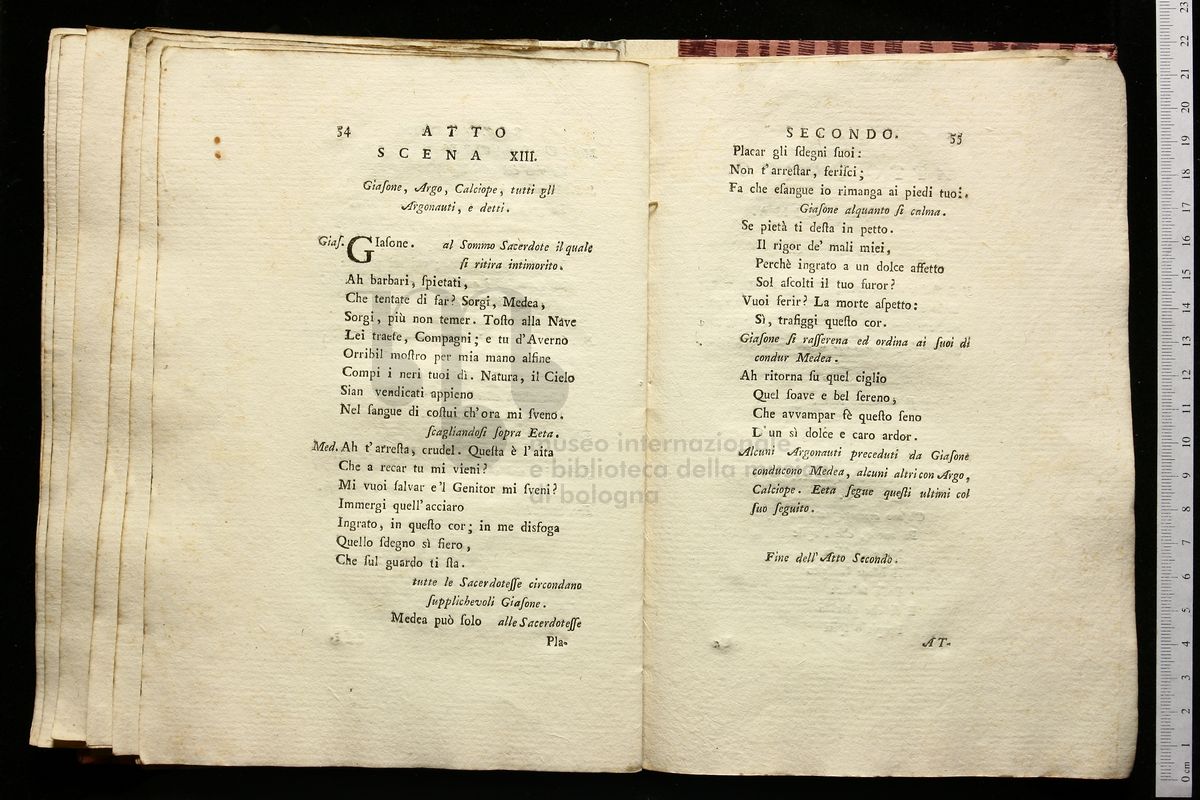 54 ATTO
SCENA XIII.
Giaſone, Argo, Calciope, tutti gli
Argonauti, e detti.
Giaſ. GIaſone. al Sommo Sacerdote il quale
ſi ritira intimorito.
Ah barbari, ſpietati,
Che tentate di far? Sorgi, Medea,
Sorgi, più non temer. Toſto alla Nave
Lei traete, Compagni; e tu d'Averno
Orribil moſtro per mia mano alfine
Compi i neri tuoi dì. Natura, il Cielo
Sian vendicati appieno
Nel ſangue di coſtui ch'ora mi ſveno.
ſcagliandoſi ſopra Eeta.
Med. Ah t'arreſta, crudel. Queſta è l'aita
Che a recar tu mi vieni?
Mi vuoi ſalvar e'l Genitor mi ſveni?
Immergi quell'acciaro
Ingrato, in queſto cor; in me disfoga
Quello ſdegno sì fiero,
Che ſul guardo ti ſta.
tutte le Sacerdoteſſe circondano
ſupplichevoli Giaſone.
Medea può ſolo alle Sacerdoteſſe
Pla-
SECONDO. 55
Placar gli ſdegni ſuoi:
Non t'arreſtar, feriſci;
Fa che eſangue io rimanga ai piedi tuoi.
Giaſone alquanto ſi calma.
Se pietà ti deſta in petto.
Il rigor de' mali miei,
Perchè ingrato a un dolce affetto
Sol aſcolti il tuo furor?
Vuoi ferir? La morte aſpetto:
Sì, trafiggi queſto cor.
Giaſone ſi raſſerena ed ordina ai ſuoi di
condur Medea.
Ah ritorna ſu quel ciglio
Quel ſoave e bel ſereno,
Che avvampar fè queſto ſeno
D'un sì dolce e caro ardor.
Alcuni Argonauti preceduti da Giaſone
conducono Medea, alcuni altri con Argo,
Calciope. Eeta ſegue queſti ultimi col
ſuo ſeguito.
Fine dell'Atto Secondo.
AT-
museo internazionale
e biblioteca della
di bologna